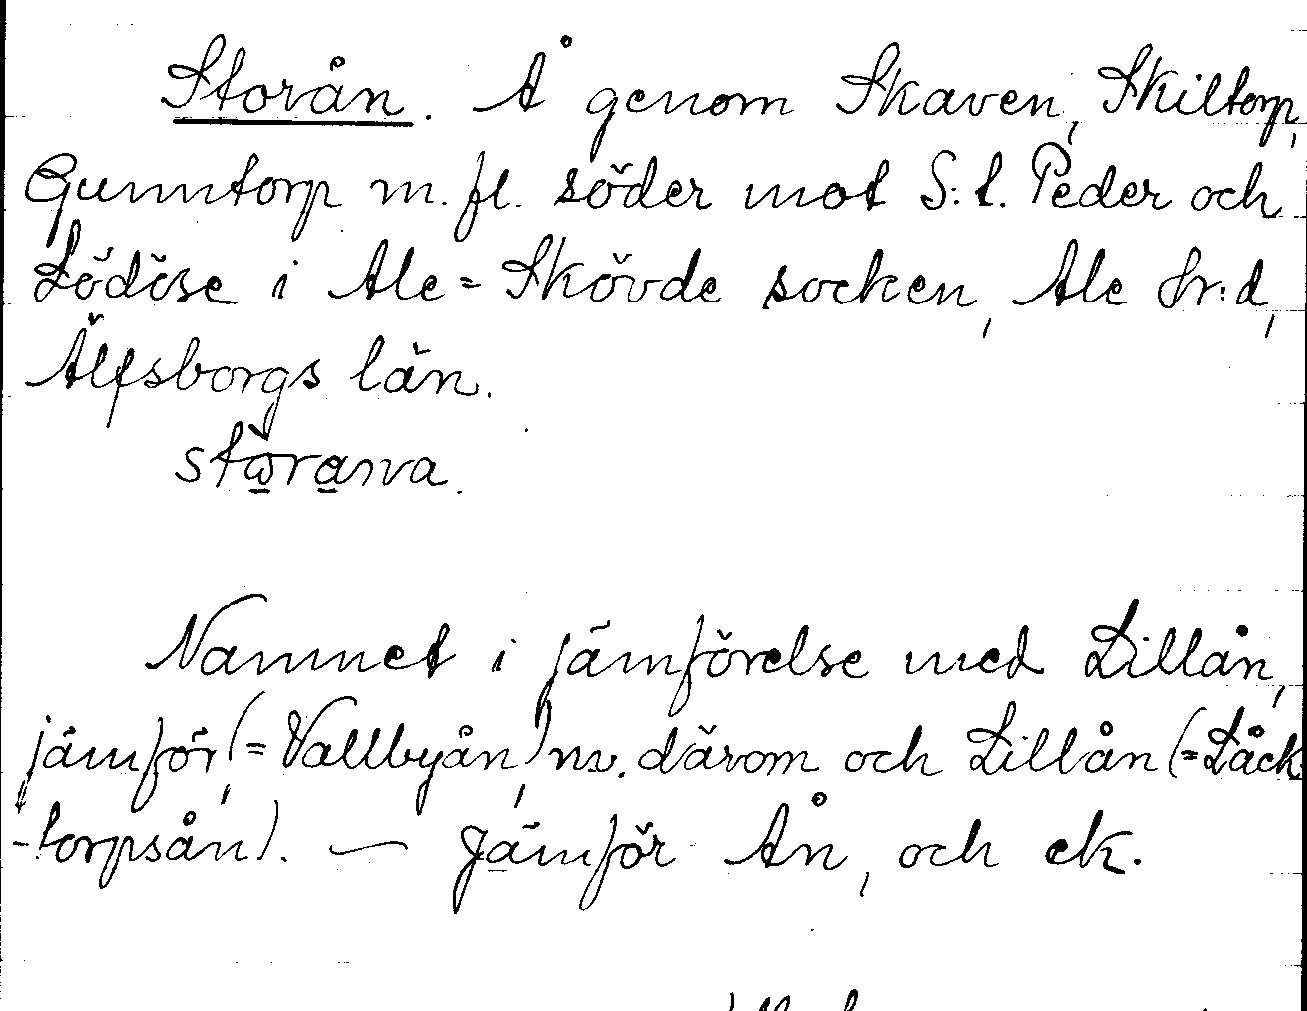 Storån. Å genom Skaven, Skiltorp,
Gunntorp m. fl. söder mot S:t. Peder och
Lödöse i Ale=Skövde socken, Ale hr:d,
Älfsborgs län.
storanna.
Namnet i jämförelse med Lillån,
jämför, (= Vallbyån,) nv. därom och Lillån (=Låck
-torpsån). — Jämför Ån, och ek.